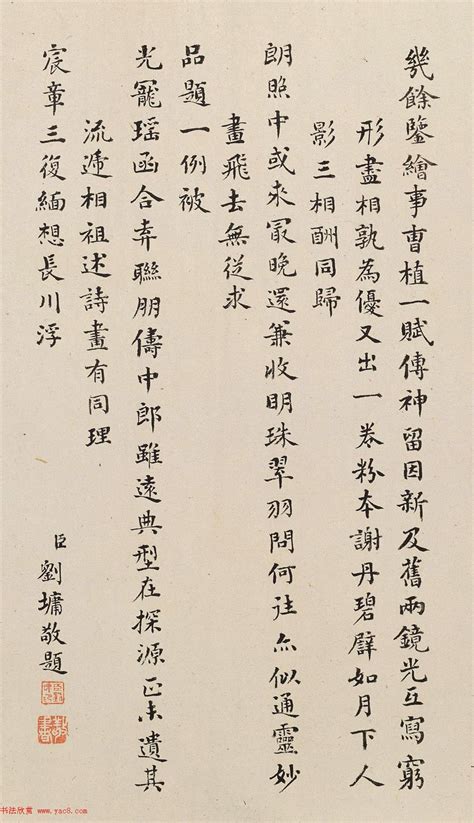 幾餘鑒繪事曹植一賦傳神留因新及舊兩鏡光互寫窮
形盡相孰為優又出一卷粉本謝丹碧譬如月下人
影三相酬同歸
朗照中或來最晚還兼收明珠翠羽問何往亦似通靈妙
畫飛去無從求
品題一例被
光寵瑶函合弆聯朋儔中郎雖遠典型在探源正未遺其
流遞相祖述詩畫有同理
宸章三復緬想長川浮
臣劉墉敬題
书法欣赏 www.yac8.com